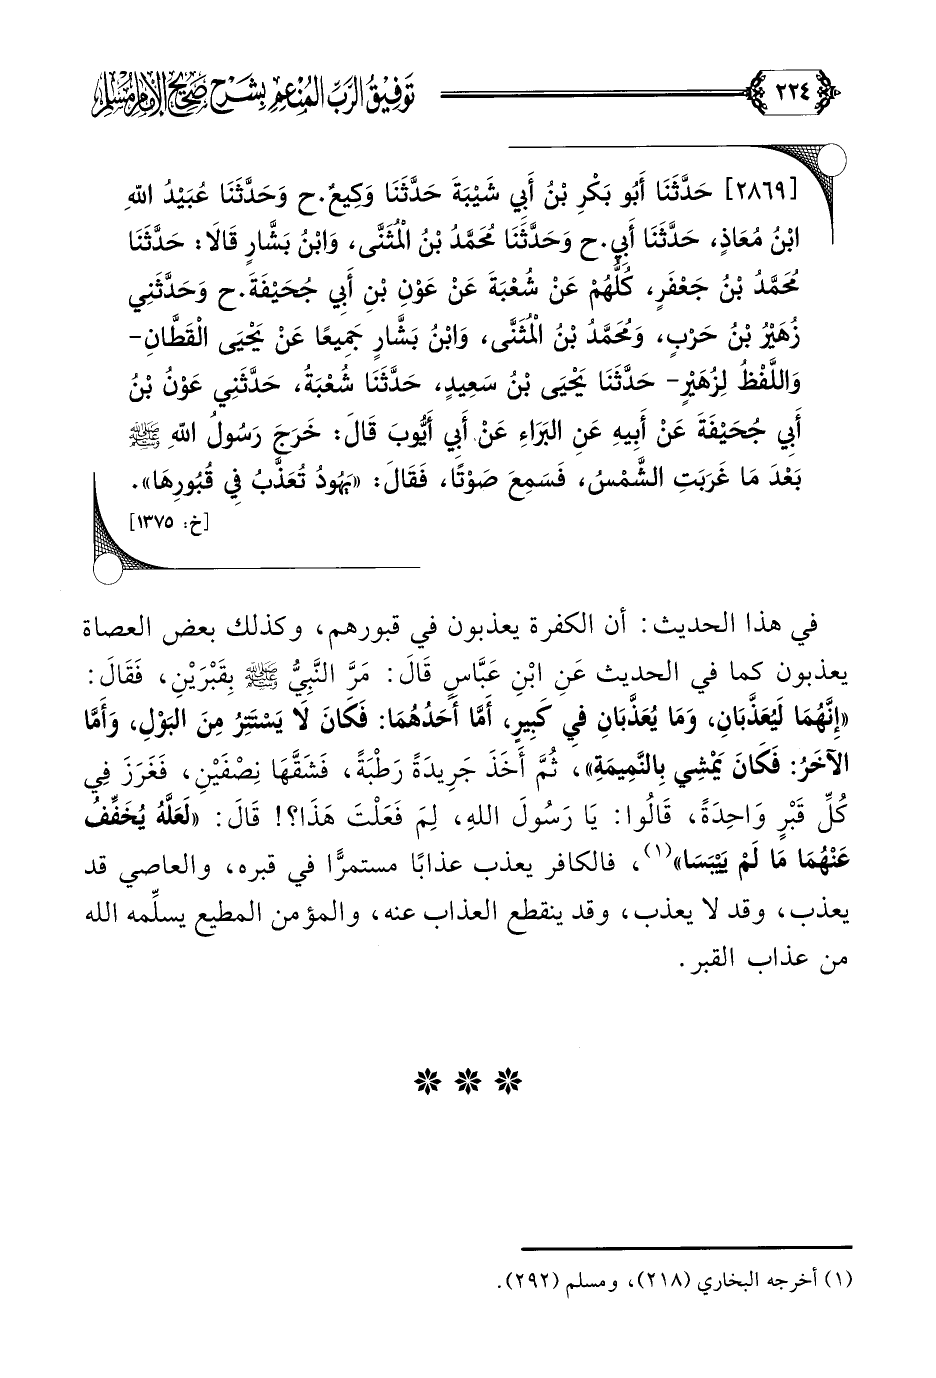 ٢٢٤
توفيق الرب المنعم بشرح صحيح الإمام مسلم
[٢٨٦٩] حَدَّثَنَا أَبُو بَكْرِ بْنُ أَبِي شَيْبَةَ حَدَّثَنَا وَكِيعٌ. ح وَحَدَّثَنَا عُبَيْدُ اللهِ
ابْنُ مُعَاذٍ، حَدَّثَنَا أَبِي. ح وَحَدَّثَنَا مُحَمَّدُ بْنُ الْمُثَنَّى، وَابْنُ بَشَّارٍ قَالَا: حَدَّثَنَا
مُحَمَّدُ بْنُ جَعْفَرٍ، كُلُّهُمْ عَنْ شُعْبَةَ عَنْ عَوْنِ بْنِ أَبِي جُحَيْفَةَ. ح وَحَدَّثَنِي
زُهَيْرُ بْنُ حَرْبٍ، وَمُحَمَّدُ بْنُ الْمُثَنَّى، وَابْنُ بَشَّارٍ جَمِيعًا عَنْ يَحْيَى الْقَطَّانِ-
وَاللَّفْظُ لِزُهَيْرٍ- حَدَّثَنَا يَحْيَى بْنُ سَعِيدٍ، حَدَّثَنَا شُعْبَةُ، حَدَّثَنِي عَوْنُ بْنُ
أَبِي جُحَيْفَةَ عَنْ أَبِيهِ عَنِ البَرَاءِ عَنْ أَبِي أَيُّوبَ قَالَ: خَرَجَ رَسُولُ اللهِ ﷺ
بَعْدَ مَا غَرَبَتِ الشَّمْسُ، فَسَمِعَ صَوْتًا، فَقَالَ: «يَهُودُ تُعَذَّبُ فِي قُبُورِهَا».
[خ: ١٣٧٥]
في هذا الحديث: أن الكفرة يعذبون في قبورهم، وكذلك بعض العصاة
يعذبون كما في الحديث عَنِ ابْنِ عَبَّاسٍ قَالَ: مَرَّ النَّبِيُّ ﷺ بِقَبْرَيْنِ، فَقَالَ:
«إِنَّهُمَا لَيُعَذَّبَانِ، وَمَا يُعَذَّبَانِ فِي كَبِيرٍ، أَمَّا أَحَدُهُمَا: فَكَانَ لَا يَسْتَتِرُ مِنَ البَوْلِ، وَأَمَّا
الآخَرُ: فَكَانَ يَمْشِي بِالنَّمِيمَةِ»، ثُمَّ أَخَذَ جَرِيدَةً رَطْبَةً، فَشَقَّهَا نِصْفَيْنِ، فَغَرَزَ فِي
كُلِّ قَبْرٍ وَاحِدَةً، قَالُوا: يَا رَسُولَ اللهِ، لِمَ فَعَلْتَ هَذَا؟! قَالَ: «لَعَلَّهُ يُخَفِّفُ
عَنْهُمَا مَا لَمْ يَيْبَسَا»(١)، فالكافر يعذب عذابًا مستمرًّا في قبره، والعاصي قد
يعذب، وقد لا يعذب، وقد ينقطع العذاب عنه، والمؤمن المطيع يسلِّمه الله
من عذاب القبر.
(١) أخرجه البخاري (٢١٨)، ومسلم (٢٩٢).